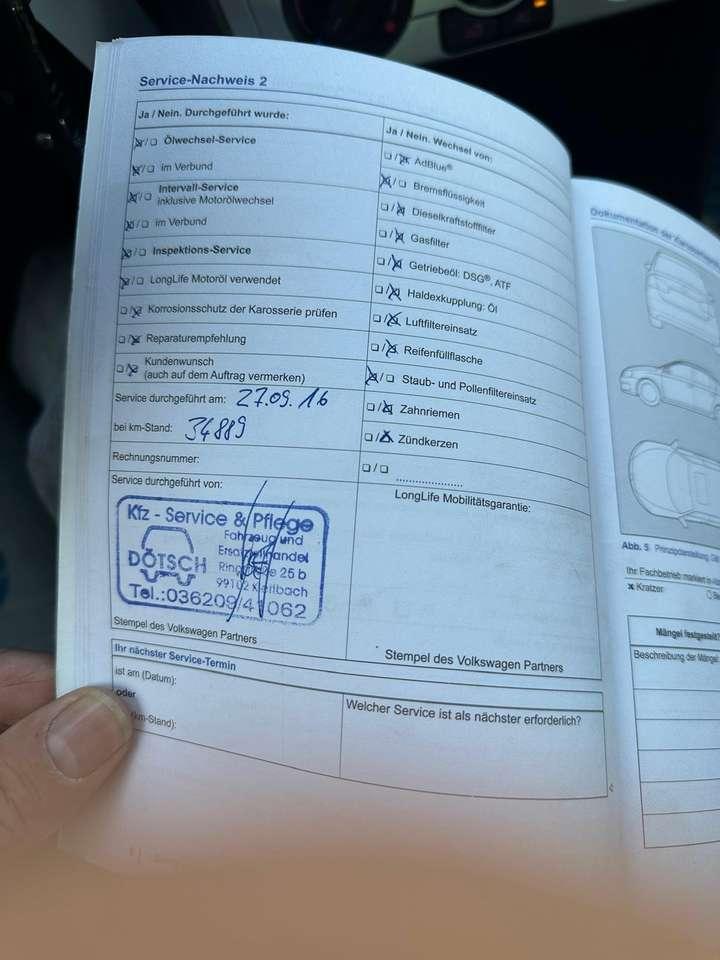 Service-Nachweis 2
Ja / Nein. Durchgeführt wurde:
☒/☐ Ölwechsel-Service
☒/☐ im Verbund
☒/☐ Intervall-Service
inklusive Motorölwechsel
☒/☐ im Verbund
☒/☐ Inspektions-Service
☒/☐ LongLife Motoröl verwendet
☐/☒ Korrosionsschutz der Karosserie prüfen
☐/☒ Reparaturempfehlung
☐/☒ Kundenwunsch
(auch auf dem Auftrag vermerken)
Service durchgeführt am: 27.09.16
bei km-Stand: 34889
Rechnungsnummer:
Service durchgeführt von:
Kfz - Service & Pflege
Fahrzeug und
Ersatzteilhandel
DÖTSCH
25 b
99102
Tel.:036209/41062
Stempel des Volkswagen Partners
Ja / Nein. Wechsel von:
☐/☒ AdBlue®
☒/☐ Bremsflüssigkeit
☐/☒ Dieselkraftstofffilter
☐/☒ Gasfilter
☐/☒ Getriebeöl: DSG®, ATF
☐/☒ Haldexkupplung: Öl
☐/☒ Luftfiltereinsatz
☐/☒ Reifenfüllflasche
☒/☐ Staub- und Pollenfiltereinsatz
☐/☒ Zahnriemen
☐/☒ Zündkerzen
☐/☐ ......................
LongLife Mobilitätsgarantie:
Stempel des Volkswagen Partners
Ihr nächster Service-Termin
ist am (Datum):
oder
(km-Stand):
Welcher Service ist als nächster erforderlich?
Dokumentation der
Abb. 5
Ihr Fachbetrieb markiert in
x Kratzer
Mängel festgestellt?
Beschreibung der Mängel